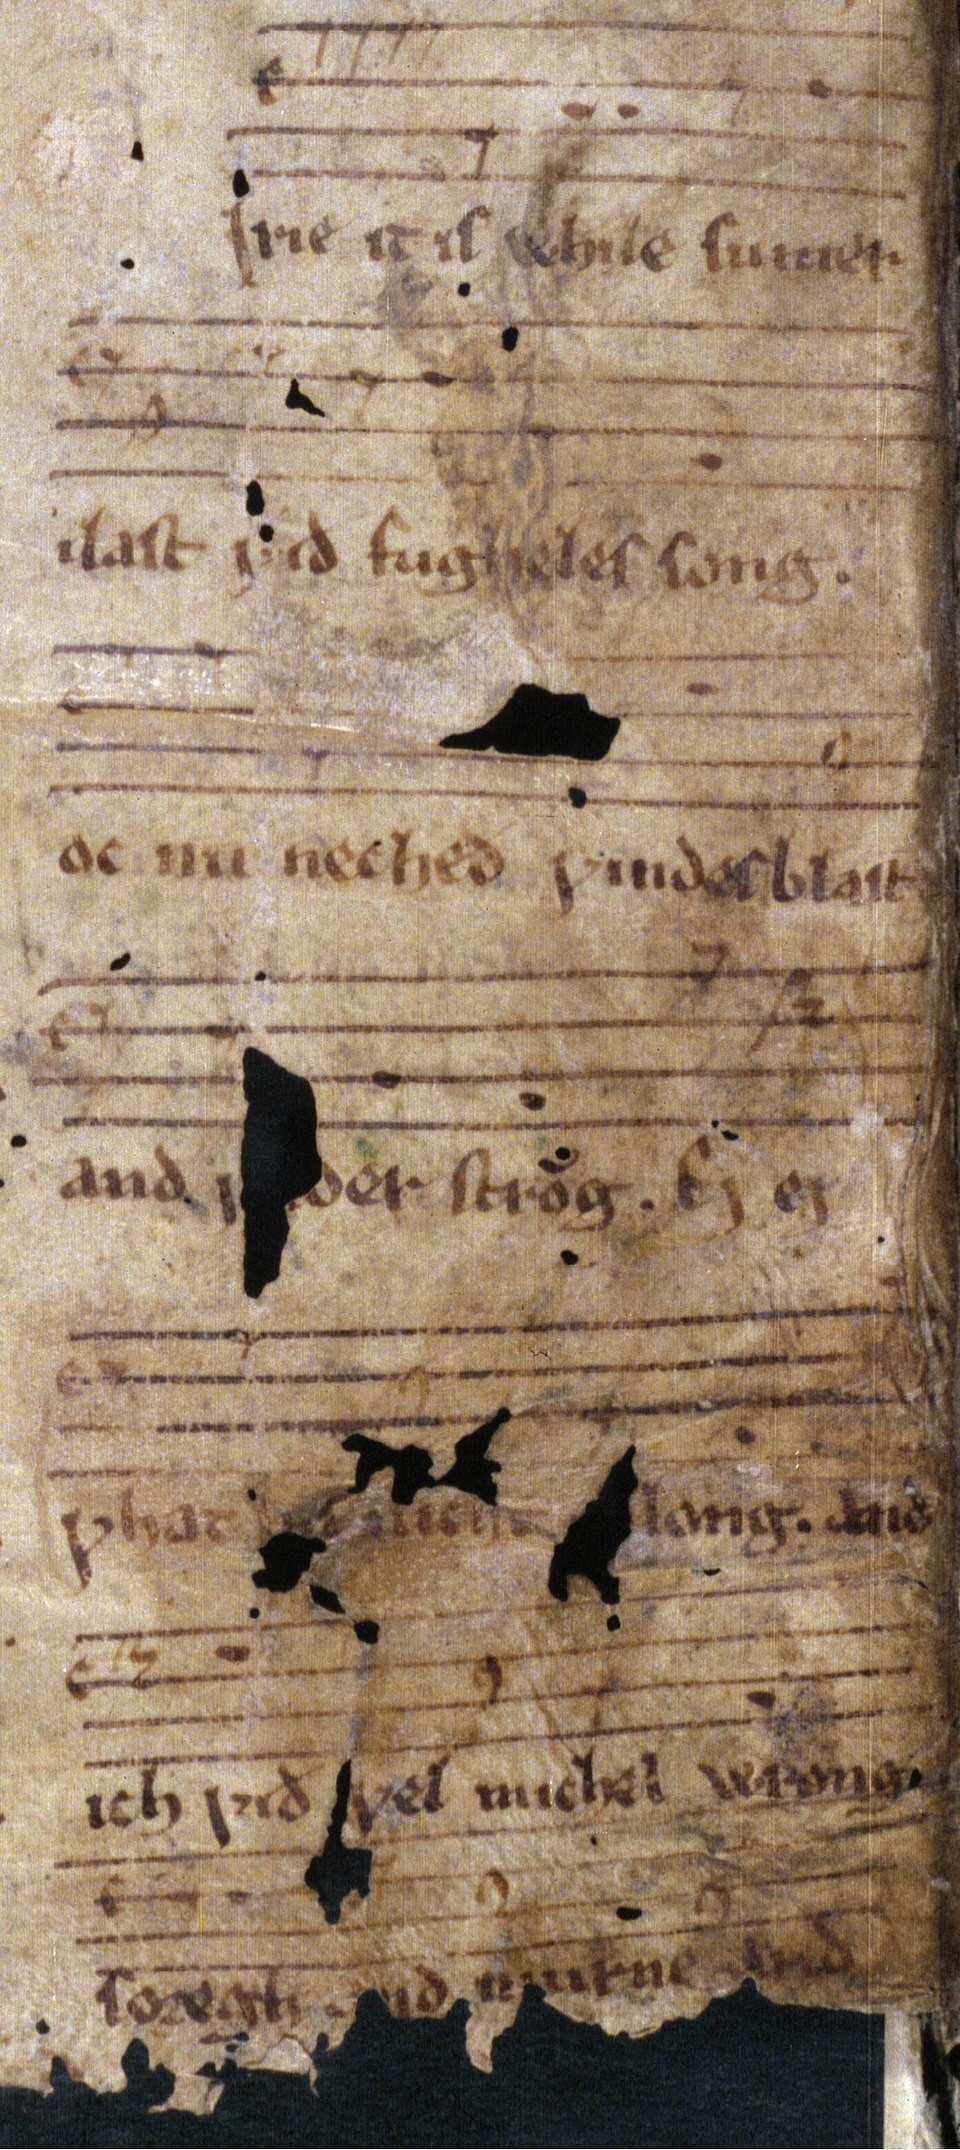 irie it is while sumer
ilast ƿid fugheles song.
oc nu neched ƿindes blast
and ƿ der strōg. Ej ej
ƿhat nicht long. And
ich ƿid ƿel michel wrong.
soregh and murne and